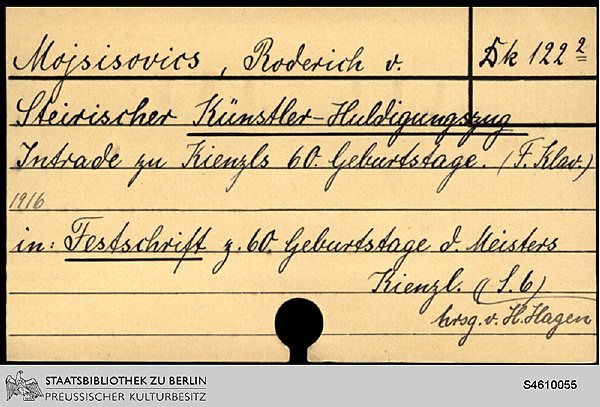 Mojsisovics, Roderich v.
Dk 122²
Steirischer Künstler-Huldigungszug
Intrade zu Kienzls 60. Geburtstage. (F. Klav.)
1916
in: Festschrift z. 60. Geburtstage d. Meisters
Kienzl. (S. 6)
hrsg. v. H. Hagen
STAATSBIBLIOTHEK ZU BERLIN
PREUSSISCHER KULTURBESITZ
S4610055